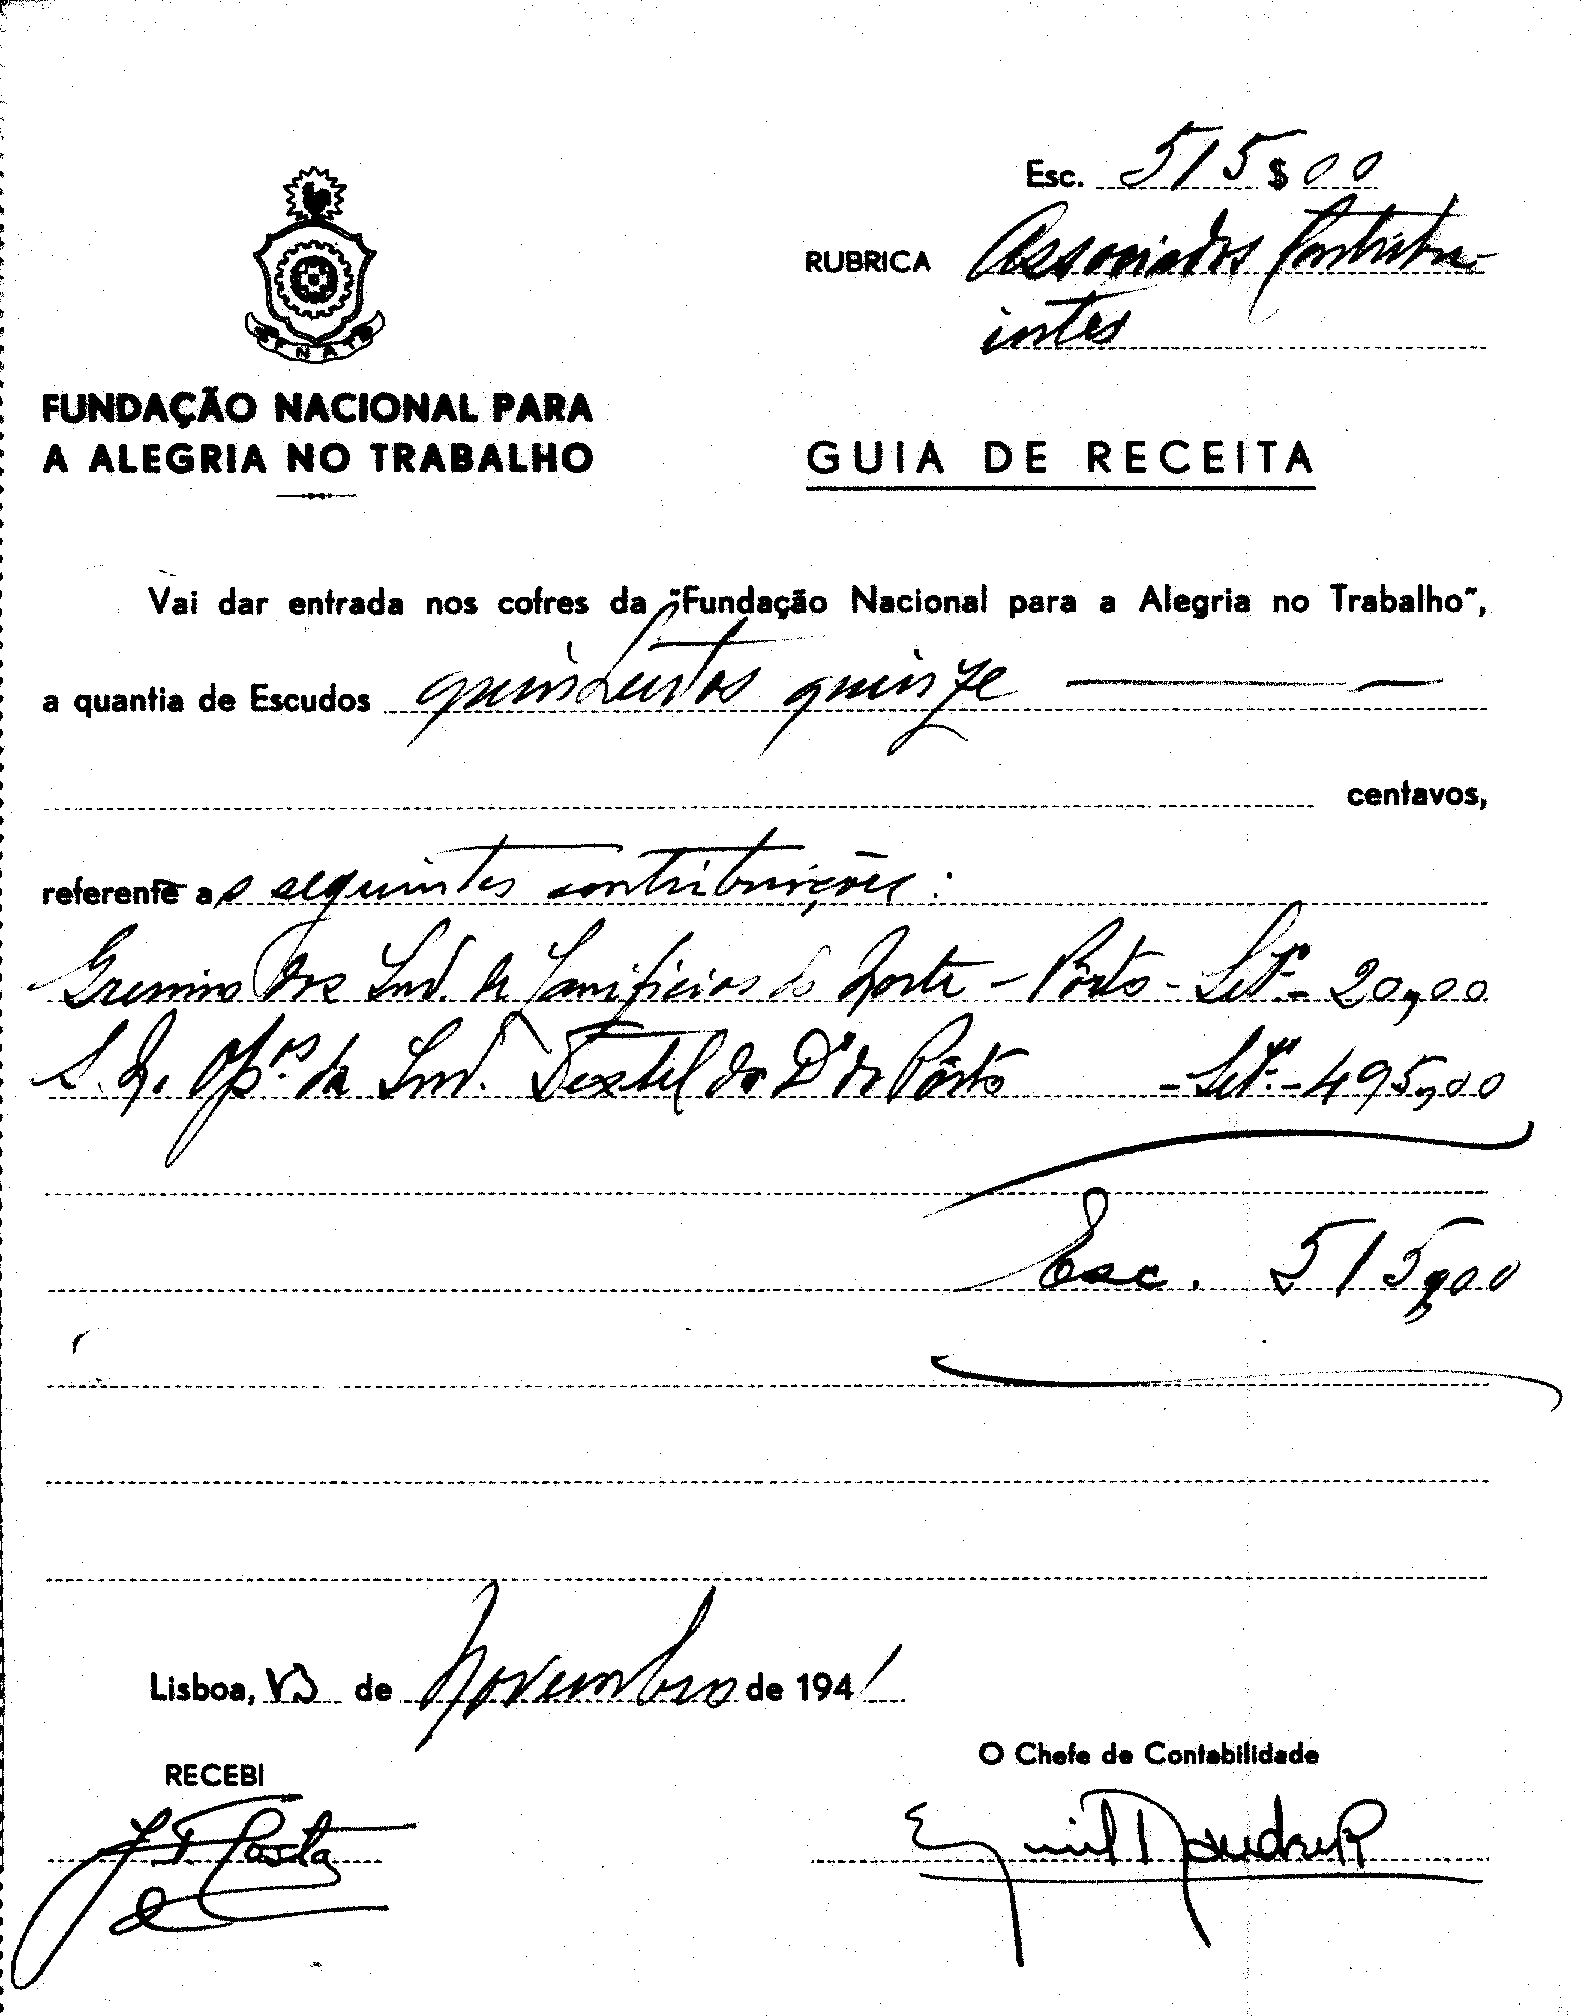 Esc. 515$00
RUBRICA Associados Contribu-
intes
FNAT
FUNDAÇÃO NACIONAL PARA
A ALEGRIA NO TRABALHO
GUIA DE RECEITA
Vai dar entrada nos cofres da "Fundação Nacional para a Alegria no Trabalho",
a quantia de Escudos quinhentos quinze
centavos,
referente as seguintes contribuições:
Gremio dos Ind. de Lanificios do Norte - Porto - Setº - 20,00
S. N. Opºs. da Ind. Textil do Dº do Pôrto - Setº. - 495,00
Esc. 515,00
Lisboa, 13 de Novembro de 1941
RECEBI
O Chefe de Contabilidade
J. F. Costa